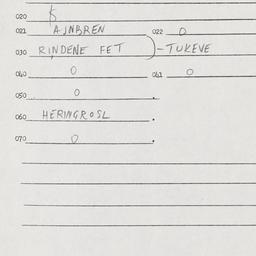 020 $
021 AJNBREN 022 O
030 RINDENE FET )-TUKEVE
040 O 041 O
050 O .
060 HERINGROSL .
070 O .